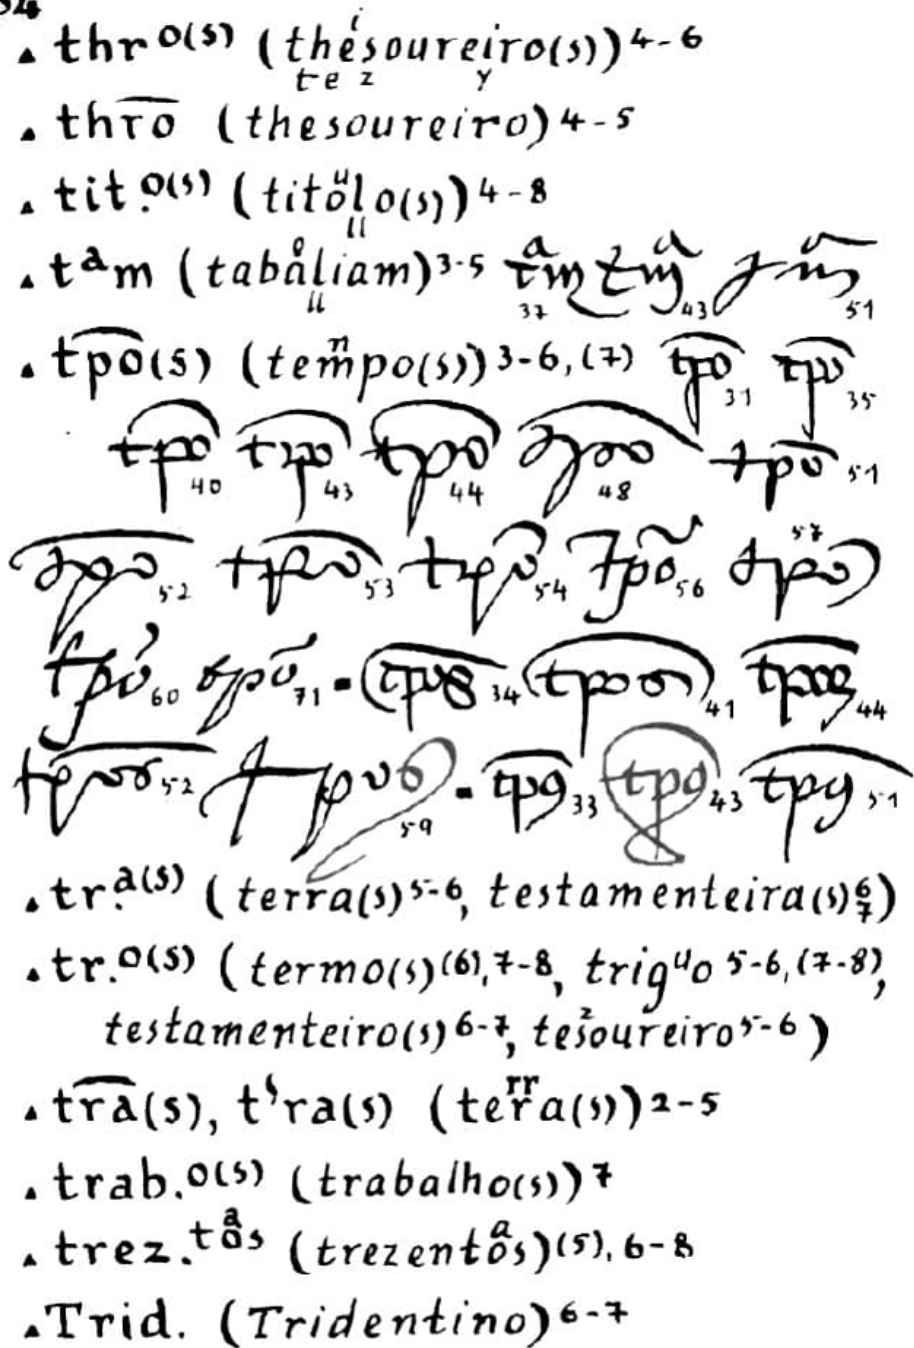 ▲ thr o(s) (thesoureiro(s)) 4-6
i
te z y
▲ thro (thesoureiro) 4-5
▲ tit. o(s) (titolo(s)) 4-8
u
ll
▲ tam (tabaliam) 3-5 tam 37 tam 43 tam 51
o
ll
▲ tpo(s) (tempo(s)) 3-6, (7) tpo 31 tpo 35
n
tpo 40 tpo 43 tpo 44 tpo 48 tpo 51
tpo 52 tpo 53 tpo 54 tpo 56 tpo 57
tpo 60 tpo 71 ▪ tpos 34 tpos 41 tpos 44
tpos 52 tpos 59 ▪ tp9 33 tp9 43 tp9 51
▲ tr. a(s) (terra(s) 5-6, testamenteira(s) 6 7)
▲ tr. o(s) (termo(s) (6), 7-8, triguo 5-6, (7-8),
testamenteiro(s) 6-7, tesoureiro 5-6)
z
▲ tra(s), t'ra(s) (tera(s)) 2-5
rr
▲ trab. o(s) (trabalho(s)) 7
▲ trez. tos (trezentos) (5), 6-8
a a
▲ Trid. (Tridentino) 6-7